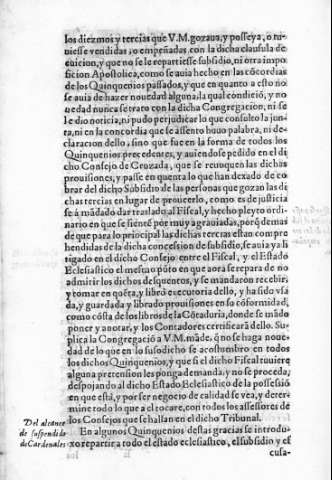 los diezmos y tercias que V.M. gozaua, y posseya, o tu-
uiesse vendidas, o empeñadas, con la dicha clausula de
euicion, y que no se le repartiesse subsidio, ni otra impo
sicion Apostolica, como se auia hecho en las cōcordias
de los Quinquenios passados, y que en quanto a esto no
se auia de hazer nouedad alguna, la qual condicion, y no
uedad nunca se trato con la dicha Congregacion, ni se
le dio noticia, ni pudo perjudicar lo que consulto la jun-
ta, ni en la concordia que se assento huuo palabra, ni de-
claracion dello, sino que fue en la forma de todos los
Quinquenios precedentes, y auiendose pedido en el di
cho Consejo de Cruzada, que se reuoquen las dichas
prouisiones, y passe en quenta lo que han dexado de co
brar del dicho Subsidio de las personas que gozan las di
chas tercias en lugar de proueerlo, como es de justicia
se à mādado dar traslado al Fiscal, y hecho pleyto ordi-
nario en que se sienē por muy agrauiadas, porq̃ demas
de que para lo principal las dichas tercias estan compre
hendidas de la dicha concession de subsidio, se auia ya li
tigado en el dicho Consejo entre el Fiscal, y el Estado
Eclesiastico el mesmo pūto en que aora se repara de no
admitir los dichos desquentos, y se mandaron recebir,
y tomar en quēta, y libró executoria dello, y ha sido vsa
da, y guardada y librado prouisiones en su cōformidad,
como cōsta de los libros de la Cōtaduria, donde se mādó
poner y anotar, y los Contadores certificarā dello. Su-
plica la Congregació a V.M. māde, q̃ no se haga noue-
dad de lo que en lo susodicho se acostumbro en todos
los dichos Quinquenios, y que si el dicho Fiscal tuuiere
alguna pretension les ponga demanda, y no se proceda,
despojando al dicho Estado Eclesiastico de la possessió
en que está, y por ser negocio de calidad se vea, y deter-
mine todo lo que a el tocare, con todos los assessores de
los Consejos que se hallan en el dicho Tribunal.
Del alcance
de suspendido
de Cardenales
En algunos Quinquenios destas gracias se introdu-
xo repartir a todo el estado eclesiastico, el subsidio y es
cusa-